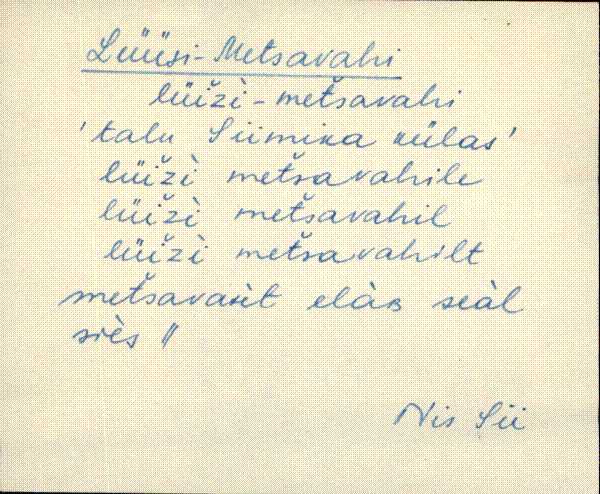 Lüüsi-Metsavahi
lüižì-metšavahi
'talu Siimika külas'
lüižì metšavahile
lüižì metšavahil
lüižì metšavahilt
elàʙ seàl
siès ||
Nis Sii